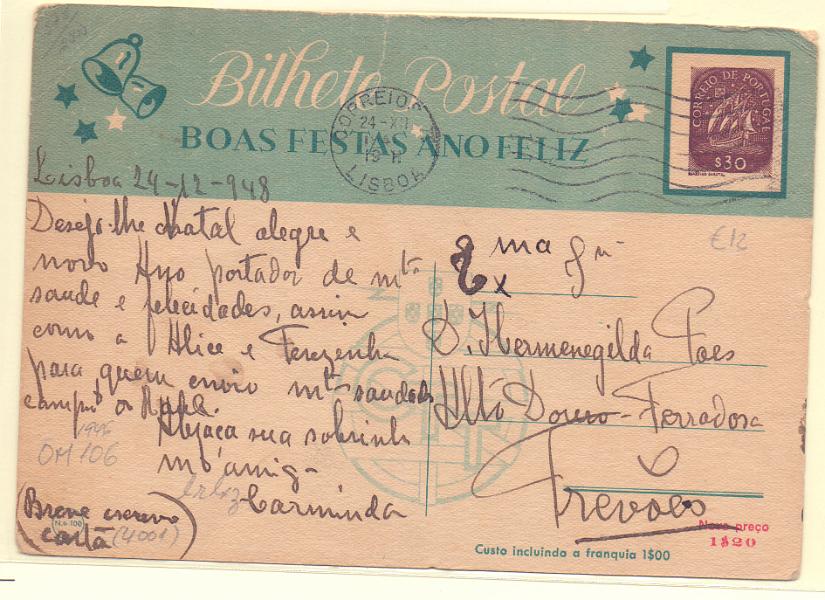 Bilhete Postal
BOAS FESTAS ANO FELIZ
CORREIOS
24-XII
19 H
LISBOA
CORREIO DE PORTUGAL
$30
Lisboa 24-12-948
Desejo-lhe Natal alegre e
novo Ano portador de mta
saude e felicidades, assim
como a Alice e Terezinha
para quem envio mtas saudades
Abraça sua sobrinha
mto amiga
Carminda
(Breve escrevo
carta
Nº 100
(4001)
1946
OM 106
€12
Exma Sra
D. Hermenegilda Paes
Alto Douro-Ferradosa
Trevões
CTT
Novo preço
1$20
Custo incluindo a franquia 1$00